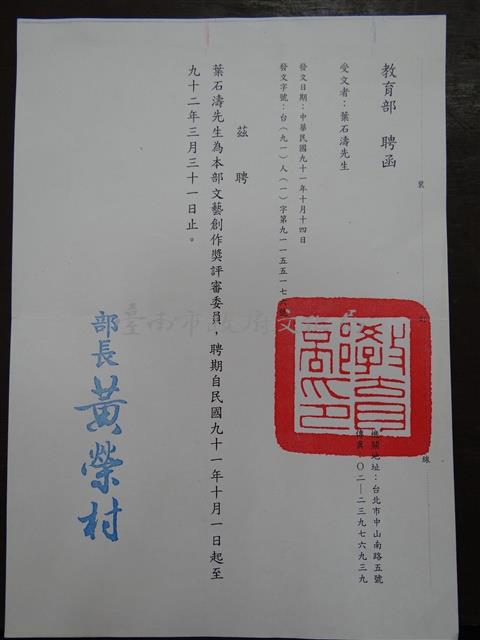 教育部 聘函
機關地址：台北市中山南路五號
傳真：〇二—二三九七六九三九
受文者：葉石濤先生
發文日期：中華民國九十一年十月十四日
發文字號：台（九一）人（一）字第九一一五五一七
茲 聘
葉石濤先生為本部文藝創作獎評審委員，聘期自民國九十一年十月一日起至
九十二年三月三十一日止。
部長 黃榮村
裝
線
教育部印
臺南市政府文